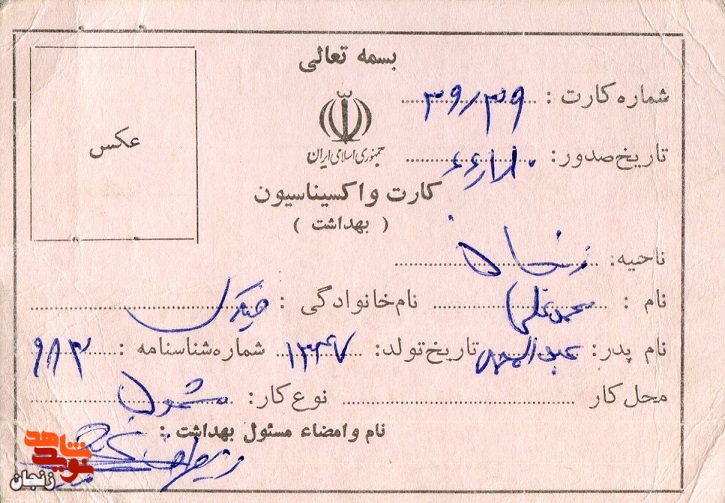 بسمه تعالی
شماره کارت : ۳۹/۳۹
جمهوری اسلامی ایران
تاریخ صدور:
عکس
کارت واکسیناسیون
( بهداشت )
ناحیه: زنجان
نام : محمدعلی نام خانوادگی :
نام پدر: تاریخ تولد: ۱۳۴۷ شماره شناسنامه : ۹۸۳
محل کار نوع کار: مشمول
نام و امضاء مسئول بهداشت :
نوید شاهد
زنجان